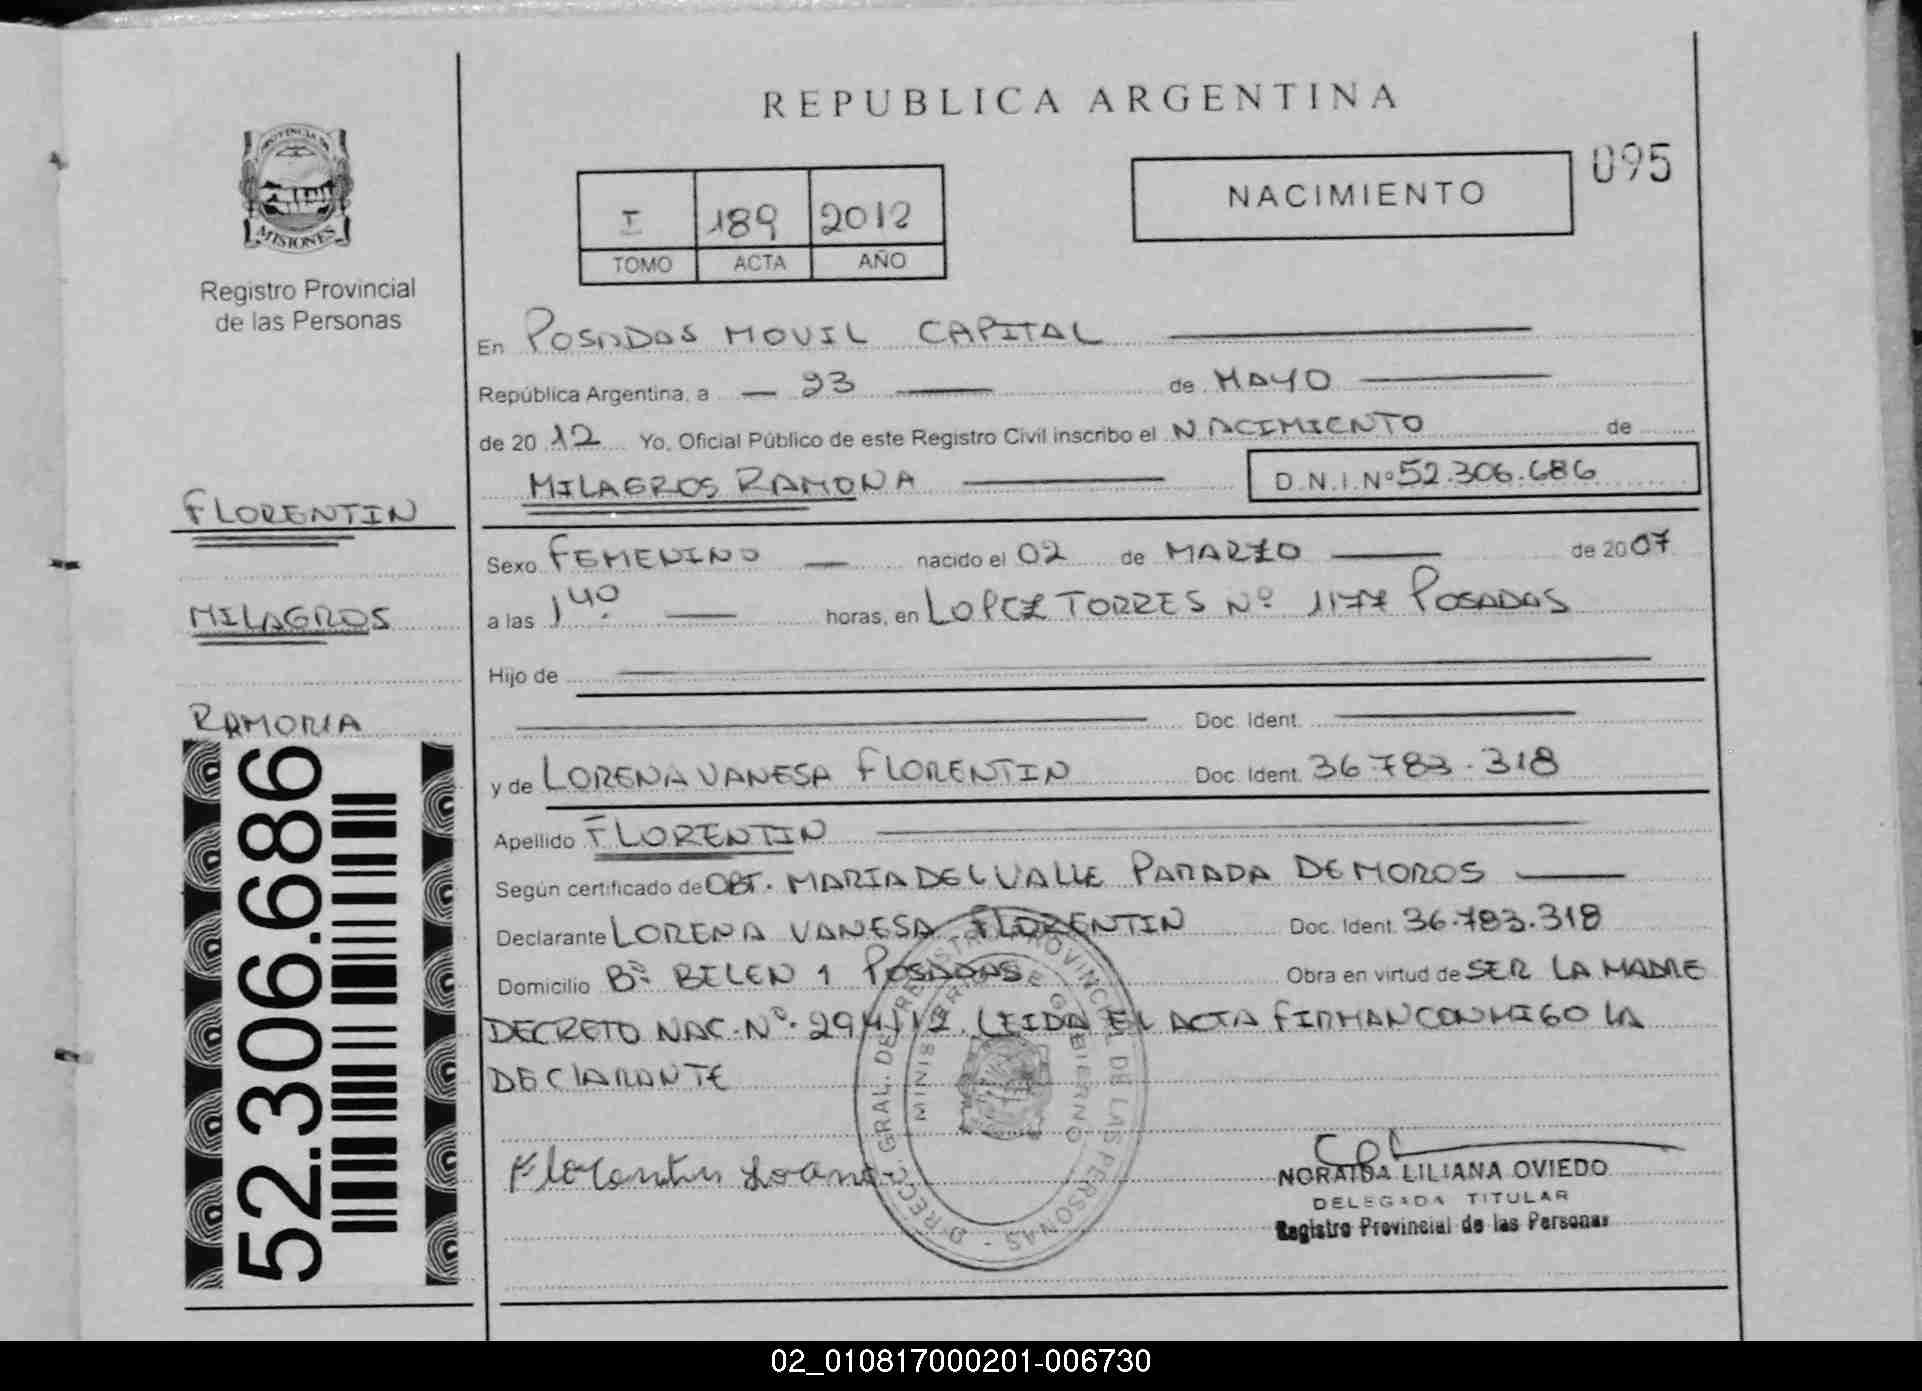 REPUBLICA ARGENTINA
PROVINCIA DE
MISIONES
Registro Provincial
de las Personas
I 189 2012
TOMO ACTA AÑO
NACIMIENTO
095
En POSADAS MOVIL CAPITAL
República Argentina, a 23 de MAYO
de 2012 Yo, Oficial Público de este Registro Civil inscribo el NACIMIENTO de
MILAGROS RAMONA D.N.I. Nº 52.306.686
FLORENTIN
MILAGROS
RAMONA
52.306.686
Sexo FEMENINO nacido el 02 de MARZO de 2007
a las 14º horas, en LOPEZ TORRES Nº 1177 POSADAS
Hijo de
Doc. Ident.
y de LORENA VANESA FLORENTIN Doc. Ident. 36.783.318
Apellido FLORENTIN
Según certificado de OBT. MARIA DEL VALLE PARADA DE MOROS
Declarante LORENA VANESA FLORENTIN Doc. Ident. 36.783.318
Domicilio Bº BELEN 1 POSADAS Obra en virtud de SER LA MADRE
DECRETO NAC. Nº. 294/12. LEIDA EL ACTA FIRMAN CONMIGO LA
DECLARANTE
Florentin Lorena
D. RECC. GRAL. DE REGISTRO PROVINCIAL DE LAS PERSONAS -
MINISTERIO DE GOBIERNO
NORAIDA LILIANA OVIEDO
DELEGADA TITULAR
Registro Provincial de las Personas
02_010817000201-006730